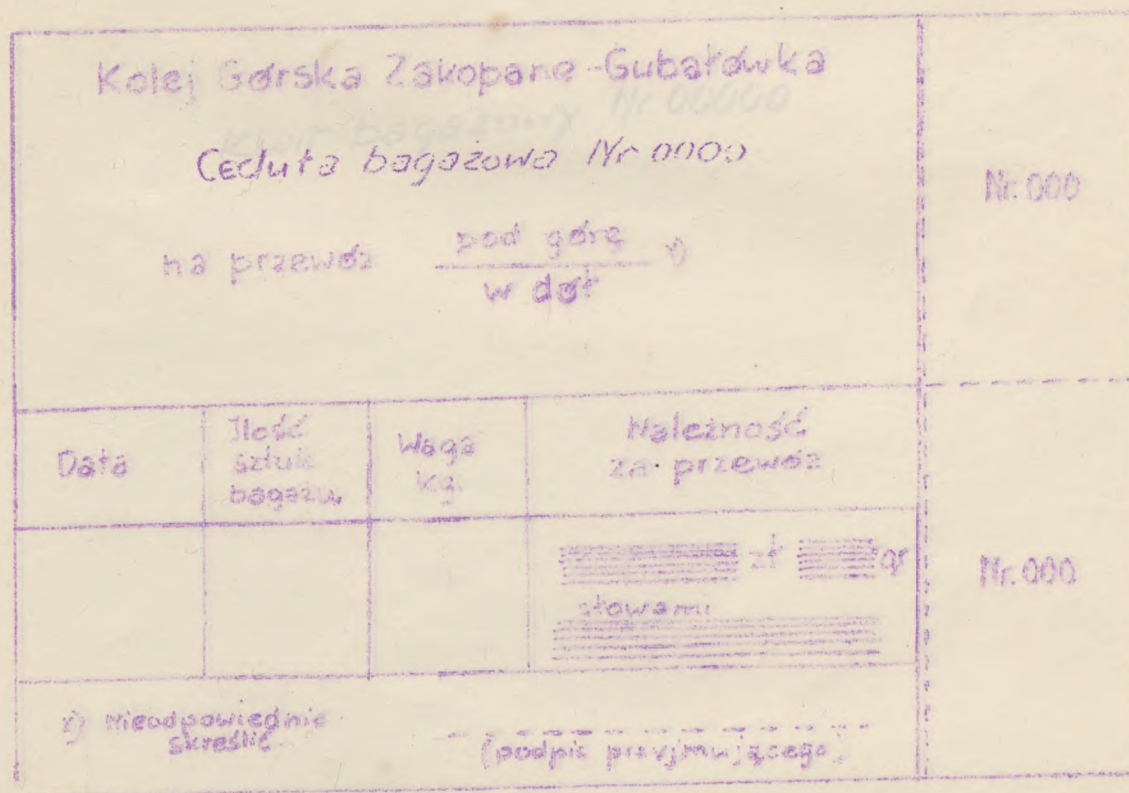 Kolej Górska Zakopane-Gubałówka
Kwit bagażowy Nr 00000
Ceduła bagażowa Nr 0000
na przewóz pod górę x)
w dół
Nr. 000
Data
Ilość
sztuk
bagażu
Waga
kg.
Należność
za przewóz
zł gr
słowami
Nr. 000
x) Nieodpowiednie
skreślić
(podpis przyjmującego)